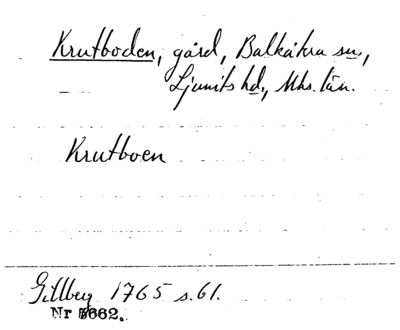 Krutboden, gård, Balkåkra sn,
Ljunits hd., Mhs. län.
Krutboen
Gillberg 1765 s. 61.
Nr 5662.